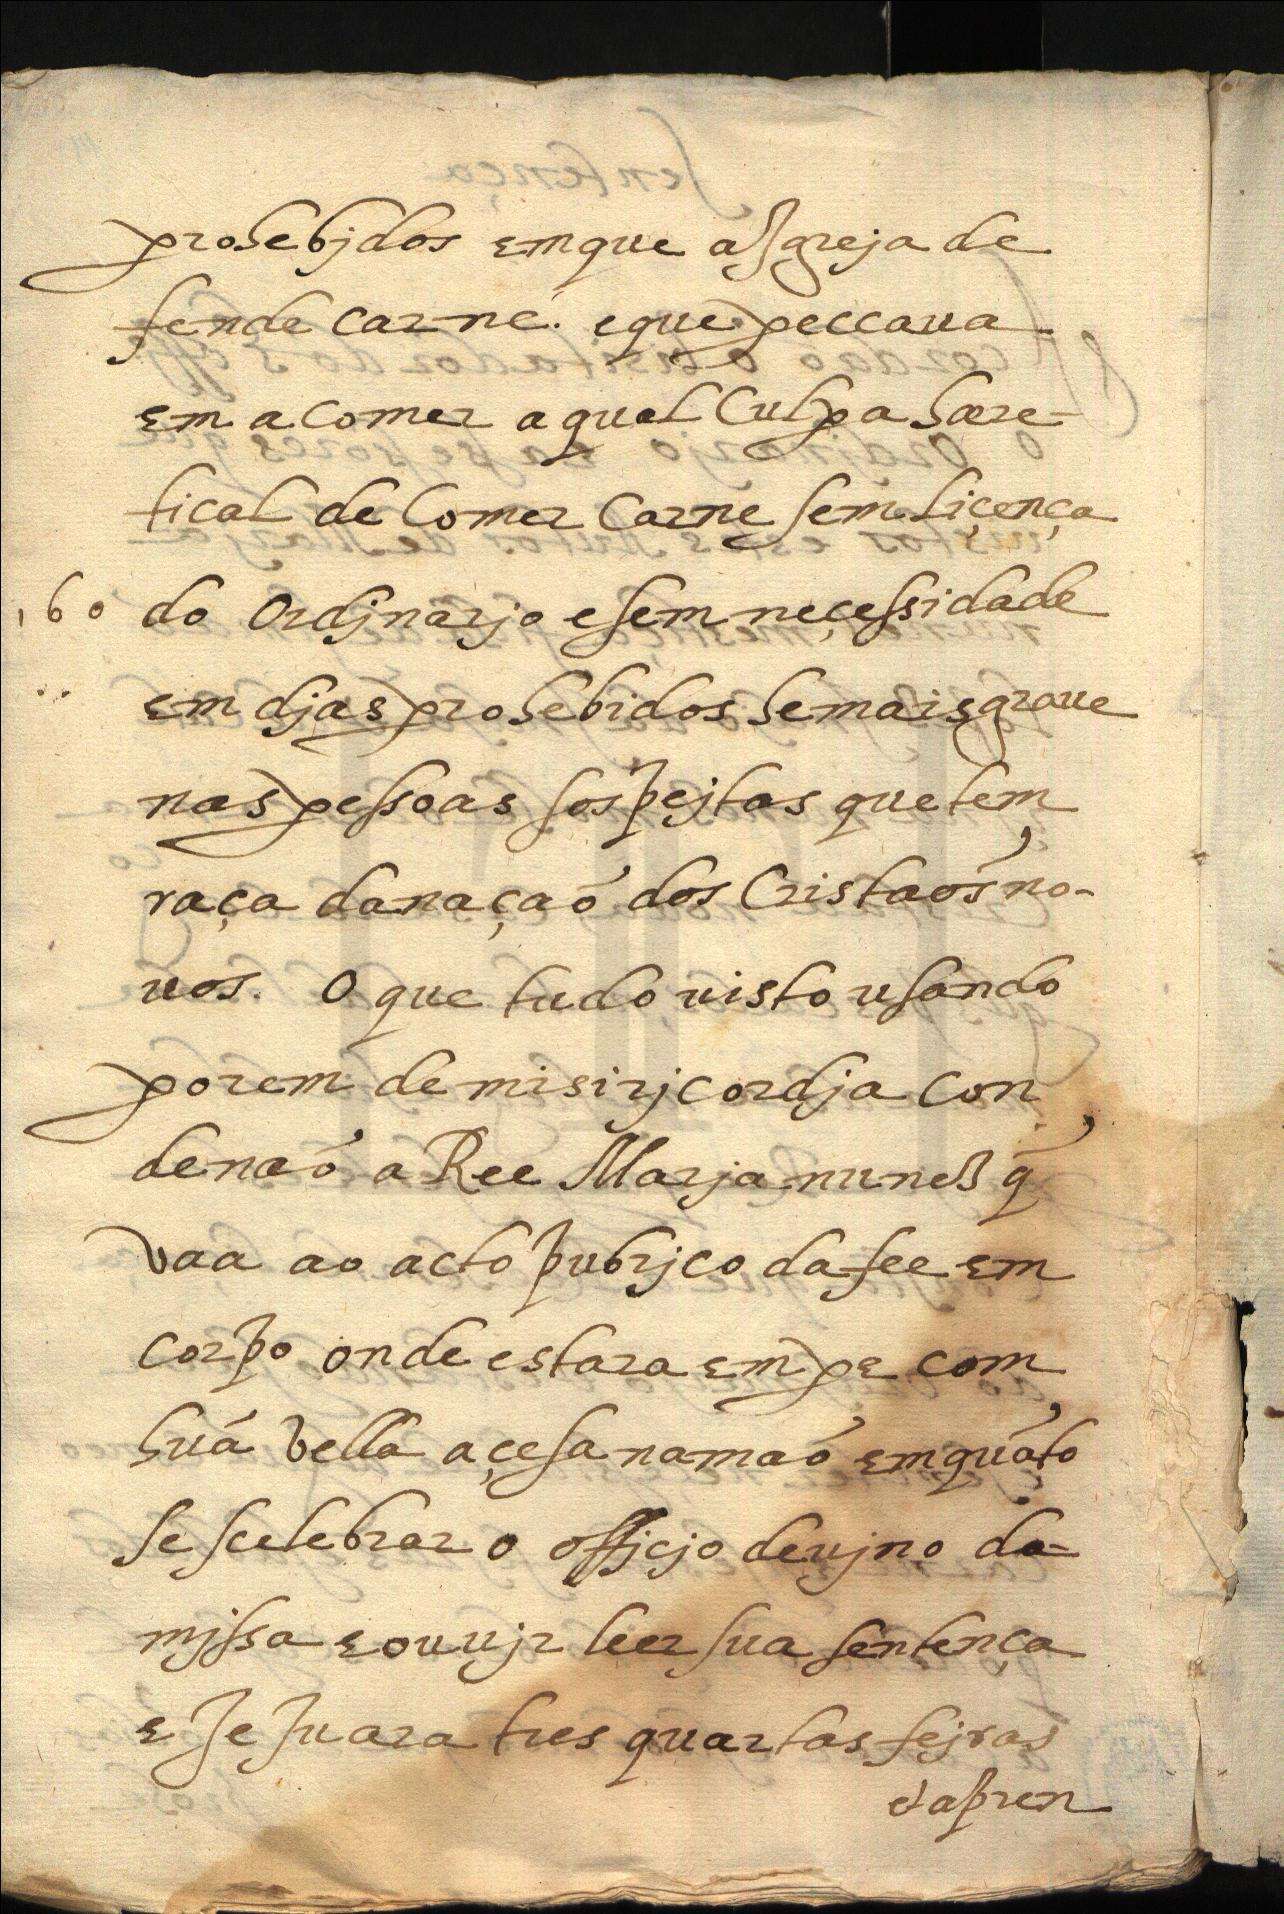 prohebjdos em que a Jgreja de
fende carne. e que peccaua
em a comer a qual Culpa hære-
tical de Comer Carne sem liçença
160 do Ordjnarjo e sem neçessidade
em djas prohebidos he mais graue
nas pessoas sospejtas que tem
raça da naçaõ dos Cristaõs no-
uos. O que tudo uisto usando
porem de misirjcordja con
denaõ a Ree Marja nunes q̃
vaa ao acto pubrjco da fee em
corpo onde estara em pe com
huã vella açesa na maõ emquãto
se scelebrar o officjo deujno da
mjssa e ouujr leer sua sentença
e JeJuara tres quartas fejras